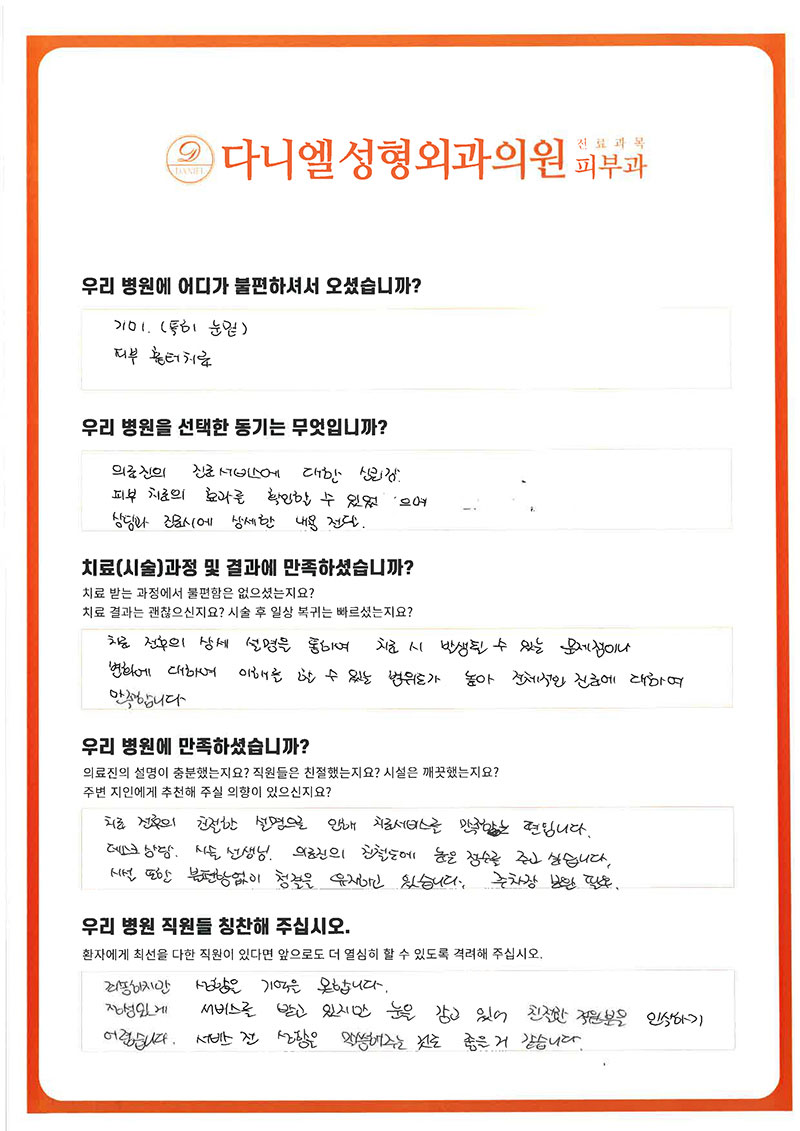 DANIEL
다니엘성형외과의원 진료과목 피부과
우리 병원에 어디가 불편하셔서 오셨습니까?
기미. (특히 눈밑)
피부 흉터치료
우리 병원을 선택한 동기는 무엇입니까?
의료진의 진료서비스에 대한 신뢰감.
피부 치료의 효과를 확인할 수 있었으며
상담과 진료시에 상세한 내용 전달.
치료(시술)과정 및 결과에 만족하셨습니까?
치료 받는 과정에서 불편함은 없으셨는지요?
치료 결과는 괜찮으신지요? 시술 후 일상 복귀는 빠르셨는지요?
치료 전후의 상세 설명을 통하여 치료 시 발생될 수 있는 문제점이나
변화에 대하여 이해를 할 수 있는 범위도가 높아 전체적인 진료에 대하여
만족합니다
우리 병원에 만족하셨습니까?
의료진의 설명이 충분했는지요? 직원들은 친절했는지요? 시설은 깨끗했는지요?
주변 지인에게 추천해 주실 의향이 있으신지요?
치료 전후의 친절한 설명으로 인해 치료서비스를 만족하는 편입니다.
데스크 상담. 시술 선생님. 의료진의 친절도에 높은 점수를 주고 싶습니다.
시설 또한 불편함없이 청결을 유지하고 있습니다. 주차장 보완 필요.
우리 병원 직원들 칭찬해 주십시오.
환자에게 최선을 다한 직원이 있다면 앞으로도 더 열심히 할 수 있도록 격려해 주십시오.
죄송하지만 성함은 기억을 못합니다.
정성있게 서비스를 받고 있지만 눈을 감고 있어 친절한 직원분을 인식하기
어렵습니다. 서비스 전 성함을 말씀해주는 것도 좋은 거 같습니다.